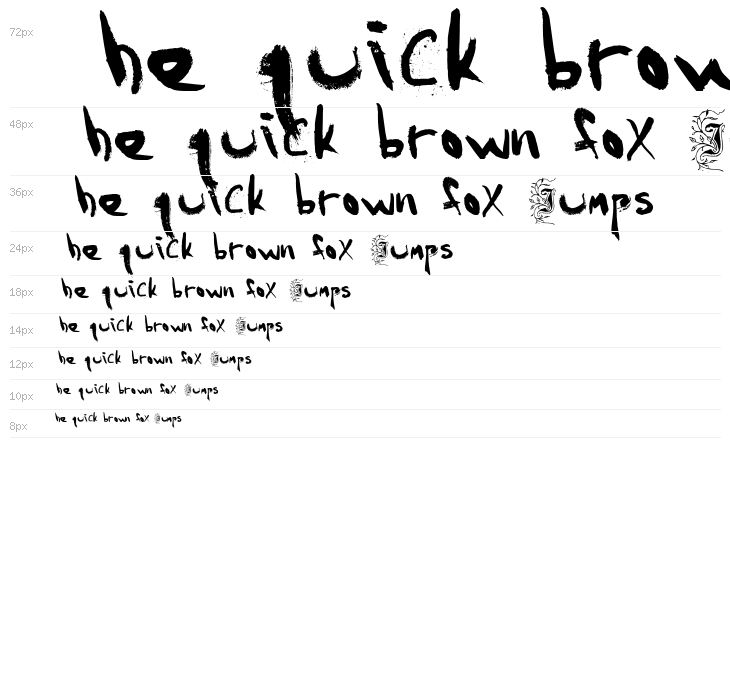 72px he quick brown
48px he quick brown fox J
36px he quick brown fox Jumps
24px he quick brown fox Jumps
18px he quick brown fox Jumps
14px he quick brown fox Jumps
12px he quick brown fox Jumps
10px he quick brown fox Jumps
8px he quick brown fox Jumps